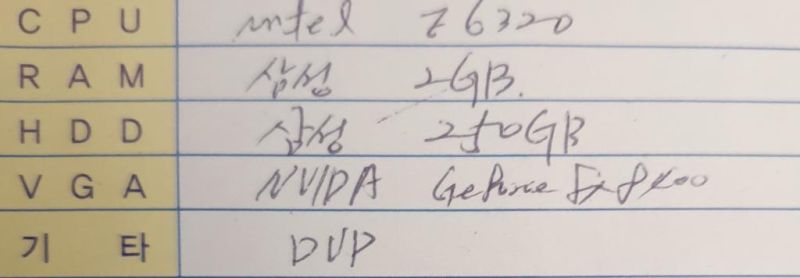 CPU intel E6320
RAM 삼성 2GB.
HDD 삼성 250GB
VGA NVIDA GeForce 8400
기타 DVD